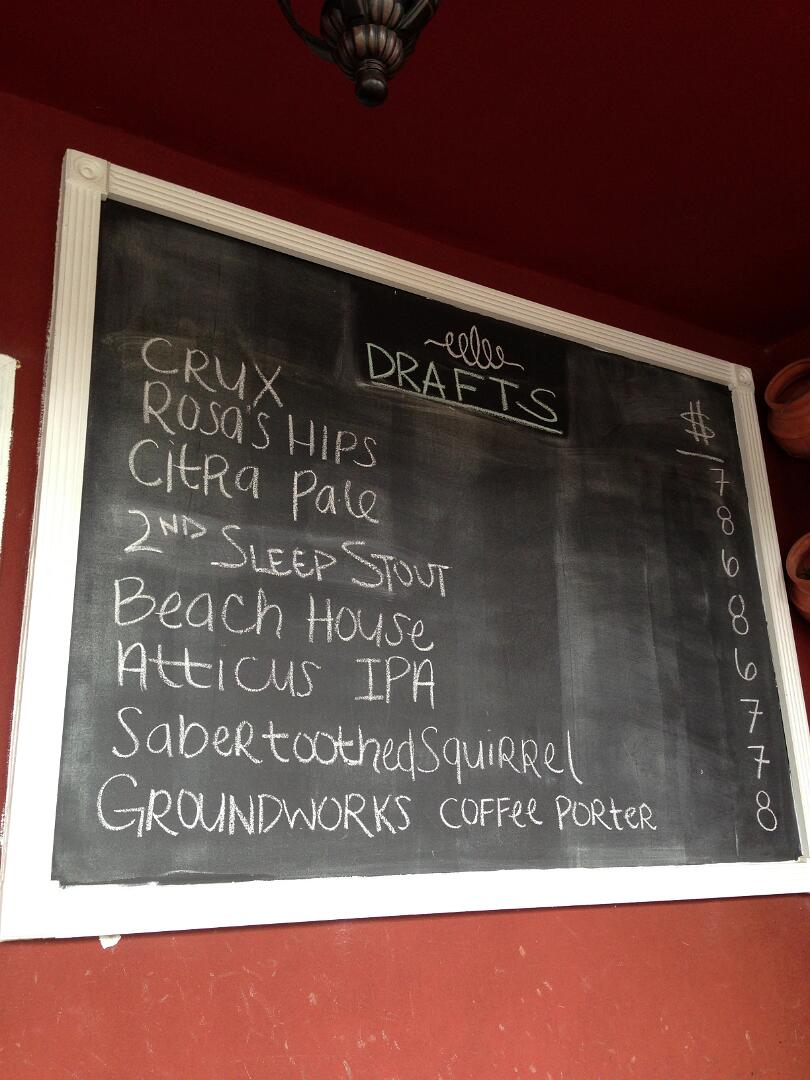 DRAFTS
$
CRUX 7
ROSa's HIPS 8
CitRa Pale 6
2ND SLEEP STOUT 8
Beach House 6
Atticus IPA 7
SabertoothedSquiRRel 7
GROUNDWORKS COFFee PORteR 8